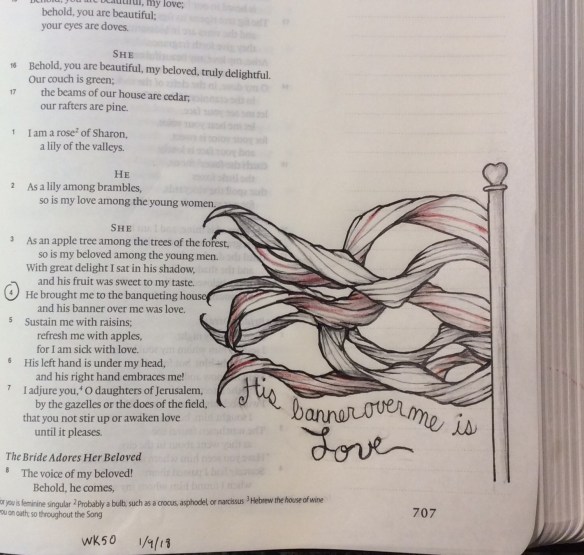 Behold, you are beautiful, my love;
behold, you are beautiful;
your eyes are doves.
SHE
16 Behold, you are beautiful, my beloved, truly delightful.
Our couch is green;
17 the beams of our house are cedar;
our rafters are pine.
1 I am a rose2 of Sharon,
a lily of the valleys.
HE
2 As a lily among brambles,
so is my love among the young women.
SHE
3 As an apple tree among the trees of the forest,
so is my beloved among the young men.
With great delight I sat in his shadow,
and his fruit was sweet to my taste.
4 He brought me to the banqueting house
and his banner over me was love.
5 Sustain me with raisins;
refresh me with apples,
for I am sick with love.
6 His left hand is under my head,
and his right hand embraces me!
7 I adjure you,4 O daughters of Jerusalem,
by the gazelles or the does of the field,
that you not stir up or awaken love
until it pleases.
His banner over me is
Love
The Bride Adores Her Beloved
8 The voice of my beloved!
Behold, he comes,
or you is feminine singular 2 Probably a bulb, such as a crocus, asphodel, or narcissus 3 Hebrew the house of wine
you on oath; so throughout the Song
707
WK50 1/9/18